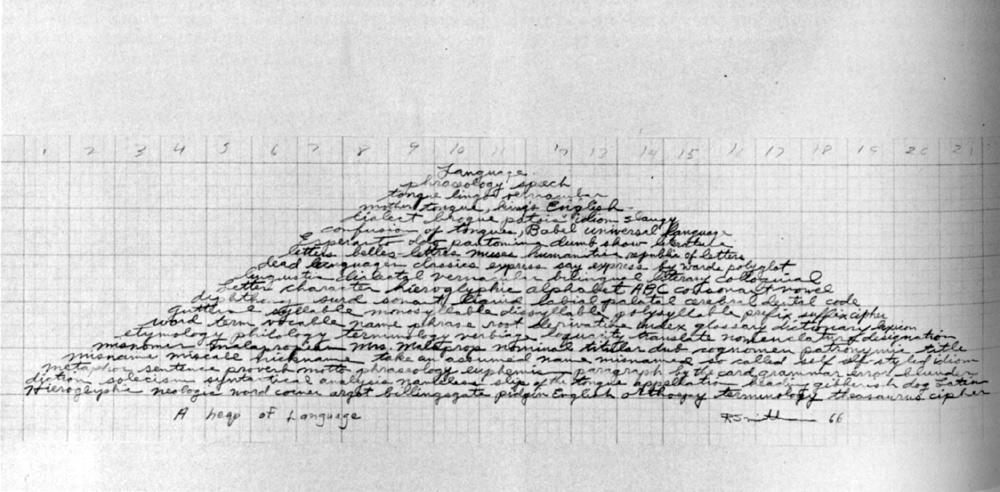 1 2 3 4 5 6 7 8 9 10 11 12 13 14 15 16 17 18 19 20 21
Language
phraseology speech
tongue lingo vernacular
mother tongue, king's English
dialect brogue patois idiom slangy
confusion of tongues, Babel universal language
Esperanto dog pantomime dumb show literature
letters belles-lettres muses humanities republic of letters
dead languages classics express say express by words polyglot
linguistic dialectal vernacular bilingual literary colloquial
letter character hieroglyphic alphabet ABC consonant vowel
diphthong surd sonant liquid labial palatal cerebral dental code
guttural syllable monosyllable dissyllable polysyllable prefix suffix cipher
word term vocable name phrase root derivative index glossary dictionary lexicon
etymology philology terminology verbiage translate nomenclature designation
misnomer malapropism Mrs. Malaprop nominal titular dub cognomen patronymic title
misname miscall nickname take an assumed name misnamed so-called self idiom
metaphor sentence proverb motto phraseology euphemism paragraph by the card grammar error blunder
diction solecism syntactical analysis nameless slip of the tongue appellation heading gibberish dog Latin
Hieroglyphic neologist word coiner argot billingsgate pidgin English orthoepy terminology thesaurus cipher
A heap of Language
R Smithson 66